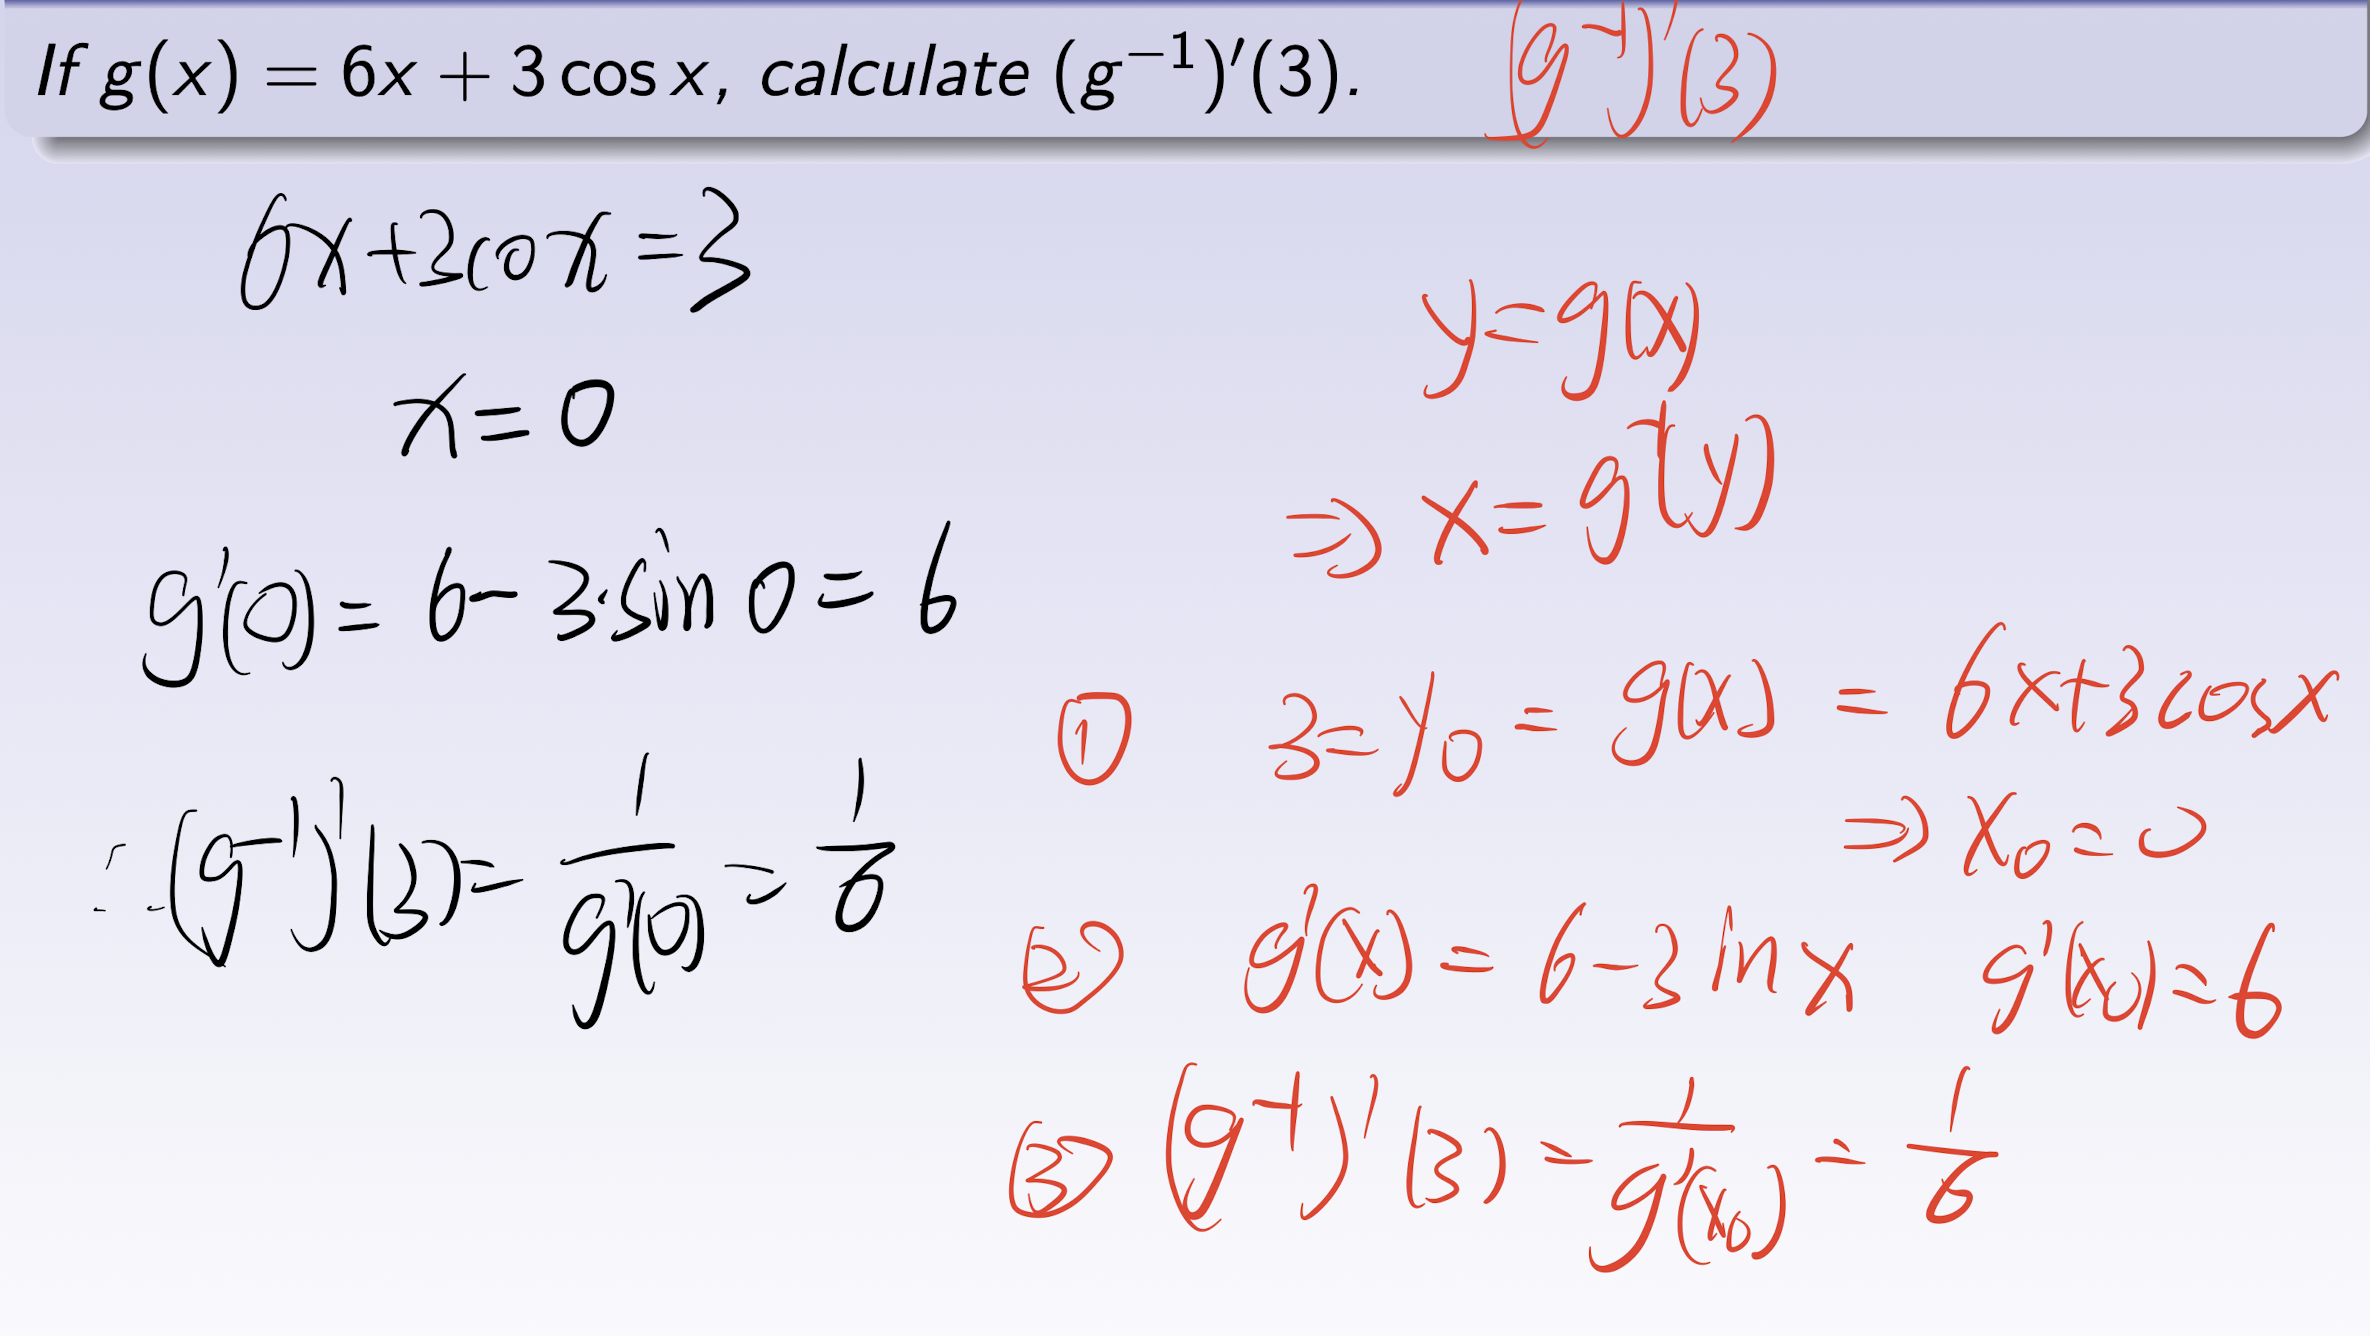 If g(x) = 6x + 3 cos x, calculate (g⁻¹)′(3).
(g⁻¹)'(3)
6x+3cox=3
x=0
g'(0)= 6-3·sin 0=6
∴(g⁻¹)'(3)=1/g'(0)=1/6
y=g(x)
⇒ x=g⁻¹(y)
① 3=y₀=g(x) = 6x+3cosx
⇒ x₀=0
② g'(x)=6-3 in x g'(x₀)=6
③ (g⁻¹)'(3)=1/g'(x₀)=1/6